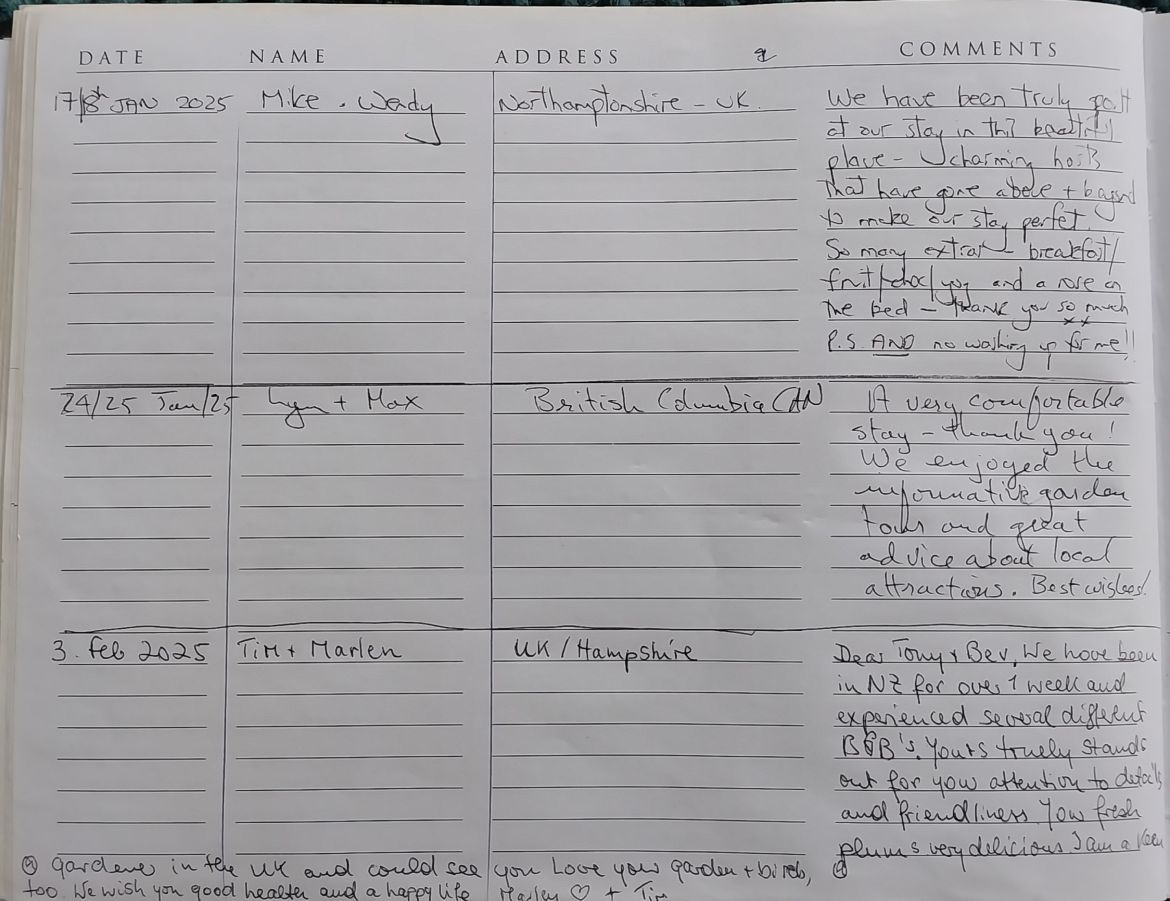 DATE NAME ADDRESS COMMENTS
17/18th JAN 2025 Mike + Wendy Northamptonshire - UK.
We have been truly spoilt
at our stay in this beautiful
place - charming hosts
that have gone above + beyond
to make our stay perfet.
So many extras - breakfast/
fruit/choc/yog and a rose on
the bed - thank you so much
xx
P.S. AND no washing up for me!!
24/25 Jan/25 Lyn + Max British Columbia CAN
A very comfortable
stay - thank you!
We enjoyed the
informative garden
tour and great
advice about local
attractions. Best wishes!
3. Feb 2025 Tim + Marlen UK / Hampshire
Dear Tony + Bev, We have been
in NZ for over 1 week and
experienced several different
B&B's. Yours truely stands
out for your attention to details
and friendliness. Your fresh
plums very delicious. I am a keen
gardener in the UK and could see you Love your garden + birds,
too. We wish you good health and a happy life Marlen ♡ + Tim